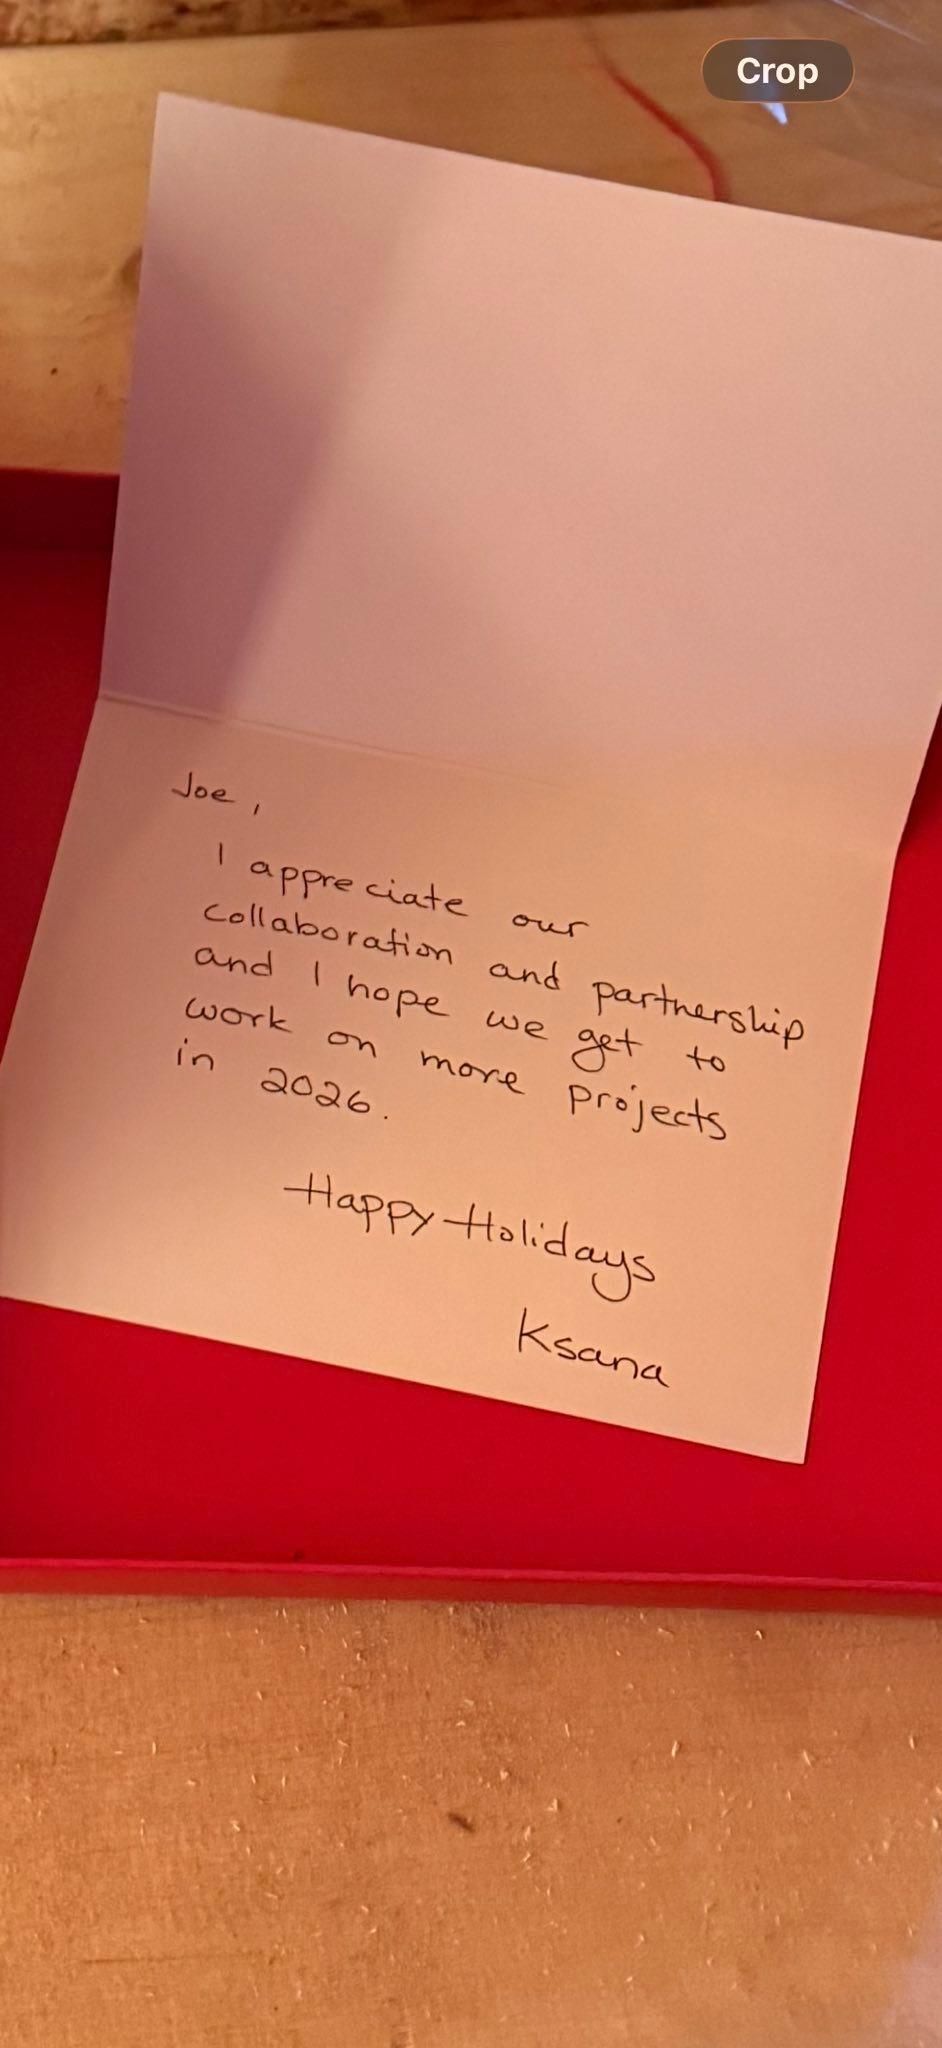 Crop
Joe,
I appreciate our
collaboration and partnership
and I hope we get to
work on more projects
in 2026.
Happy Holidays
Ksana